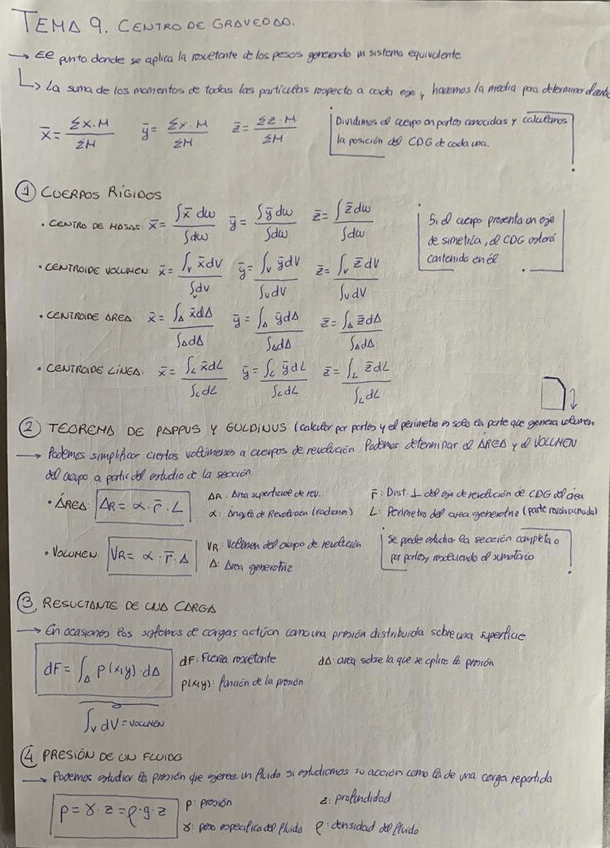 TEMA 9. CENTRO DE GRAVEDAD.
→ Ee punto donde se aplica la resultante de los pesos generando un sistema equivalente
↳ La suma de los momentos de todas las partículas respecto a cada eje y hacemos la media para determinar
x̄ = Σx·M / ΣM ȳ = Σx·M / ΣM z̄ = Σz·M / ΣM
Dividimos el cuerpo en partes conocidas y calculamos
la posición del CDG de cada una.
① CUERPOS RÍGIDOS
· CENTRO DE MASAS: x̄ = ∫x̄ dw / ∫dw ȳ = ∫ȳ dw / ∫dw z̄ = ∫z̄ dw / ∫dw
Si el cuerpo presenta un eje
de simetría, el CDG estará
contenido en él
· CENTROIDE VOLUMEN: x̄ = ∫v x̄ dV / ∫v dV ȳ = ∫v ȳ dV / ∫v dV z̄ = ∫v z̄ dV / ∫v dV
· CENTROIDE ÁREA: x̄ = ∫A x̄ dA / ∫A dA ȳ = ∫A ȳ dA / ∫A dA z̄ = ∫A z̄ dA / ∫A dA
· CENTROIDE LÍNEA: x̄ = ∫L x̄ dL / ∫L dL ȳ = ∫L ȳ dL / ∫L dL z̄ = ∫L z̄ dL / ∫L dL
② TEOREMA DE PAPPUS Y GULDINUS (calcular por partes y el perímetro es solo la parte que genera volumen
→ Podemos simplificar ciertos volúmenes a cuerpos de revolución. Podemos determinar el ÁREA y el VOLUMEN
del cuerpo a partir del estudio de la sección
· ÁREA: AR = α · r̄ · L
AR: Área superficie de rev.
α: Ángulo de Revolución (radianes)
r̄: Dist. ⊥ del eje de revolución de CDG del área
L: Perímetro del area generatriz (parte revolucionada)
· VOLUMEN: VR = α · r̄ · A
VR: Volumen del cuerpo de revolución
A: Área generatriz
Se puede estudiar la sección completa o
por partes, realizando el sumatorio
③ RESULTANTE DE UNA CARGA
→ En ocasiones los sistemas de cargas actúan como una presión distribuida sobre una superficie
dF = ∫A P(x,y) · dA
dF: Fuerza resultante
dA: area sobre la que se aplica la presión
P(x,y): función de la presión
∫v dV = VOLUMEN
④ PRESIÓN DE UN FLUIDO
→ Podemos estudiar la presión que ejerce un fluido si estudiamos su acción como la de una carga repartida
p = γ · z = ρ · g · z
P: presión
z: profundidad
γ: peso específico del fluido
ρ: densidad del fluido